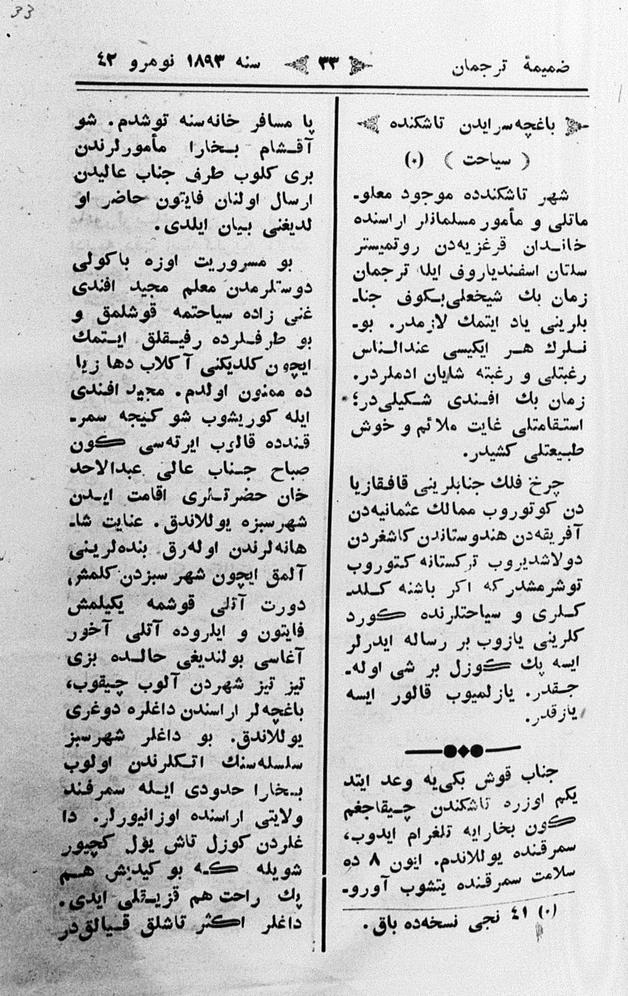 33
ضميمهٔ ترجمان ٣٣ سنه ١٨٩٣ نومرو ٤٢
باغچه‌سرايدن تاشكنده
( سياحت ) (٠)
شهر تاشكندده موجود معلو-
ماتلى و مأمور مسلمانلر اراسنده
خانـدان قرغزيه‌دن روتميستر
سلتان اسفندياروف ايله ترجمان
زمان بك شيخعلى‌بـكوف جنا-
بلرينى ياد ايتمك لازمدر. بو-
نـلرك هـر ايكيسى عندالـناس
رغبتلى و رغبته شايان ادملردر.
زمان بك افـندى شـكيلى‌در؛
استـقامتلى غايت ملائم و خوش
طبيعتلى كشيدر.
چرخ فلك جنابلرينى قافـقازيا
دن كوتوروب ممالك عثمانيه‌دن
آفريقه‌دن هندوستاندن كاشغردن
دولاشديروب تركستانه كتوروب
توشرمشدر كه اكر باشنه كلد-
كـلرى و سياحتلرنده كـورد
كلرينى يازوب بر رساله ايدرلر
ايسه پك كـوزل بر شى اوله-
جـقدر. يازلميوب قالور ايسه
يازقدر.
جناب قوش بكى‌يه وعد ايتد
يكم اوزره تاشكندن چـيقاجغم
كـون بخارايه تلغرام ايدوب،
سمرقنده يوللاندم. ايون ٨ ده
سلامت سمرقنده يتشوب آورو-
(٠) ٤١ نجى نسخه‌ده باق.
پا مسافر خانه‌سنه توشدم. شو
آقـشام بـخارا مأمورلرندن
برى كلوب طرف جناب عاليدن
ارسال اولنان فايتون حاضر او
لديغنى بيان ايلدى.
بو مسروريت اوزه باكولى
دوستلرمدن معلم مجيد افندى
غنى زاده سياحتمه قوشلمق و
بو طرفـلرده رفيـقلق ايـتمك
ايچون كلديكنى آكلاب دها زيا
ده ممنون اولدم. مجيد افندى
ايله كوريشوب شو كيجه سمر-
قندده قالوب ايرته‌سى كـون
صباح جـناب عالى عبدالاحد
خان حضرتـلرى اقامت ايـدن
شهرسبزه يوللاندق. عنايت شا-
هانه‌لرندن اوله‌رق بنده‌لرينى
آلمق ايچون شهر سبزدن كلمش
دورت آتلى قوشمه يكيلمش
فايتون و ايلروده آتلى آخور
آغاسى بولنديغى حالـده بزى
تيز تيز شهردن آلوب چـيقوب،
باغچه‌لر اراسندن داغلره دوغرى
يوللاندق. بو داغلر شهرسبز
سلسله‌سنك اتـكلرندن اولوب
بـخارا حدودى ايـله سمرقـند
ولايتى اراسنده اوزانيورلر. دا
غلردن كوزل تاش يول كچيور
شويله كـه بو كيديش هـم
پك راحت هم قزيـقلى ايدى.
داغلر اكـثر تاشلق قـيالق‌در